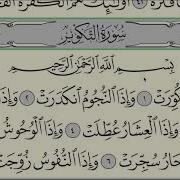 قَتَرَةٌ ٤١ أُوْلَٰٓئِكَ هُمُ ٱلْكَفَرَةُ
سُورَةُ التَّكْوِيرِ
بِسْمِ ٱللَّهِ ٱلرَّحْمَٰنِ ٱلرَّحِيمِ
كُوِّرَتْ ١ وَإِذَا ٱلنُّجُومُ ٱنكَدَرَتْ ٢ وَإِذَا
وَإِذَا ٱلْعِشَارُ عُطِّلَتْ ٤ وَإِذَا ٱلْوُحُوشُ
حَارُ سُجِّرَتْ ٦ وَإِذَا ٱلنُّفُوسُ زُوِّجَتْ